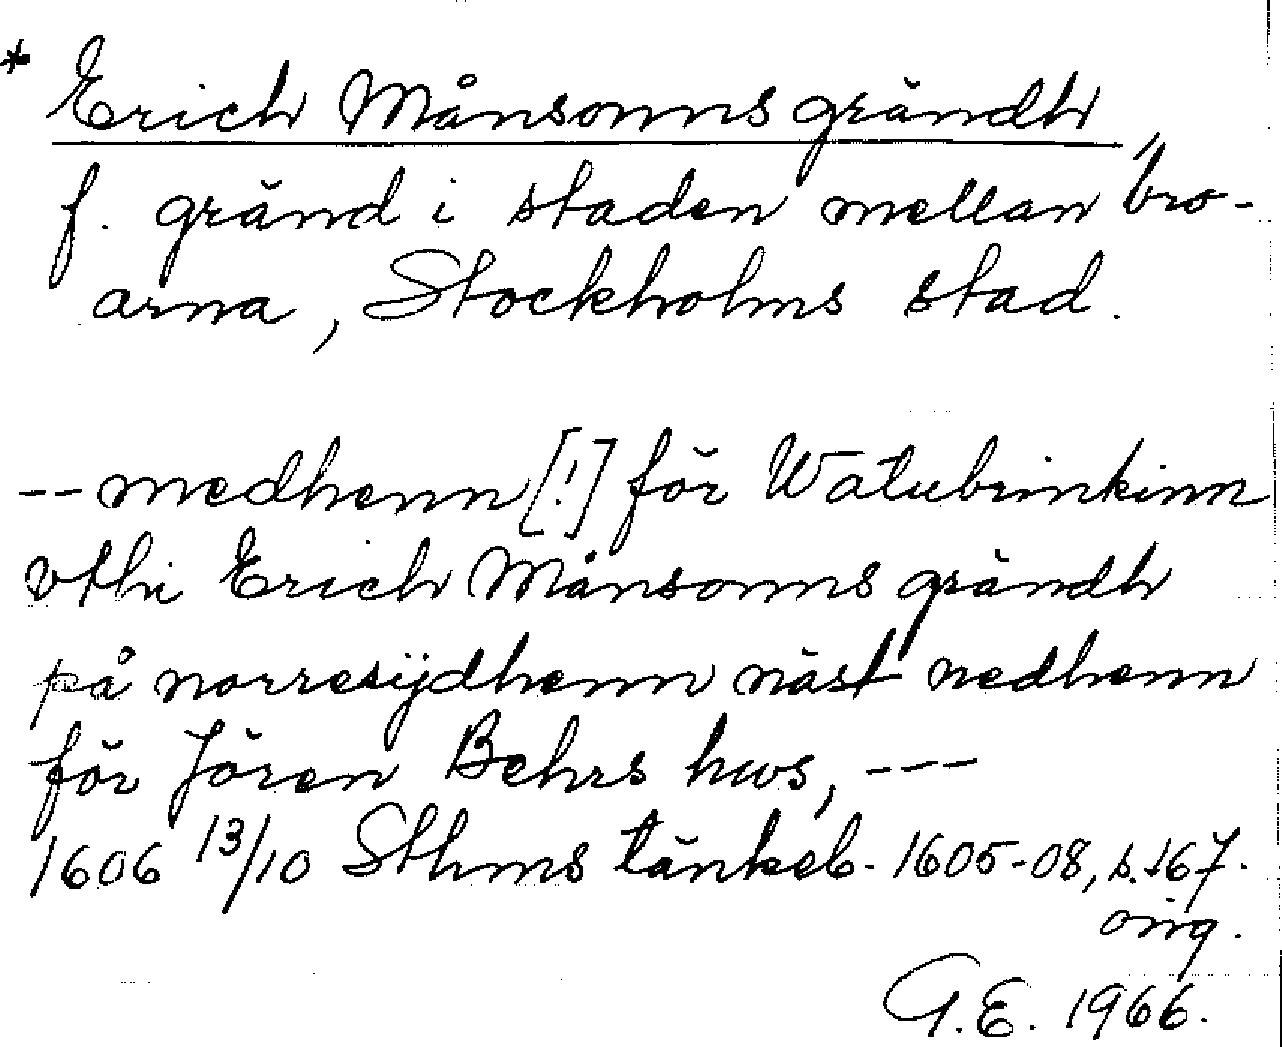 * Erich Månsonns grändh,
f. gränd i "staden mellan bro-
arna", Stockholms stad.
-- medhenn [!] för Watubrinkinn
vthi Erich Månsonns grändh
på norresijdhenn näst nedhenn
för Jören Behrs hws, ---
1606 13/10 Sthms tänkeb. 1605-08, s. 167.
orig.
G.E. 1966.